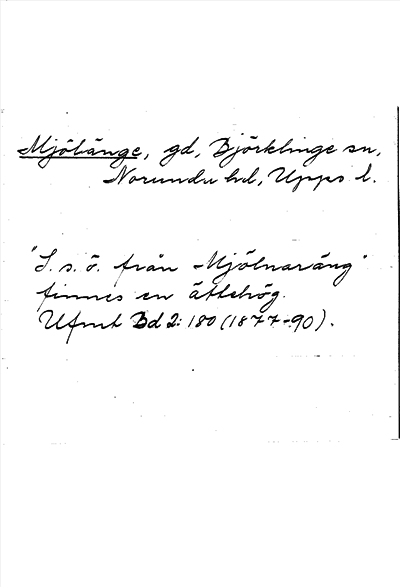 Mjölänge, gd, Björklinge sn,
Norunda hd, Upps l.
"S. s. ö. från Mjölnaräng"
finnes en ättehög.
Ufmt Bd 2: 180 (1877-90).